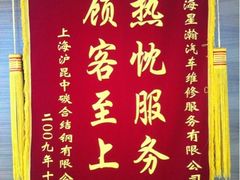 海星瀚汽车维修服务有限公司
热忱服务
顾客至上
上海沪昆中碳合结钢有限公
二00九年十